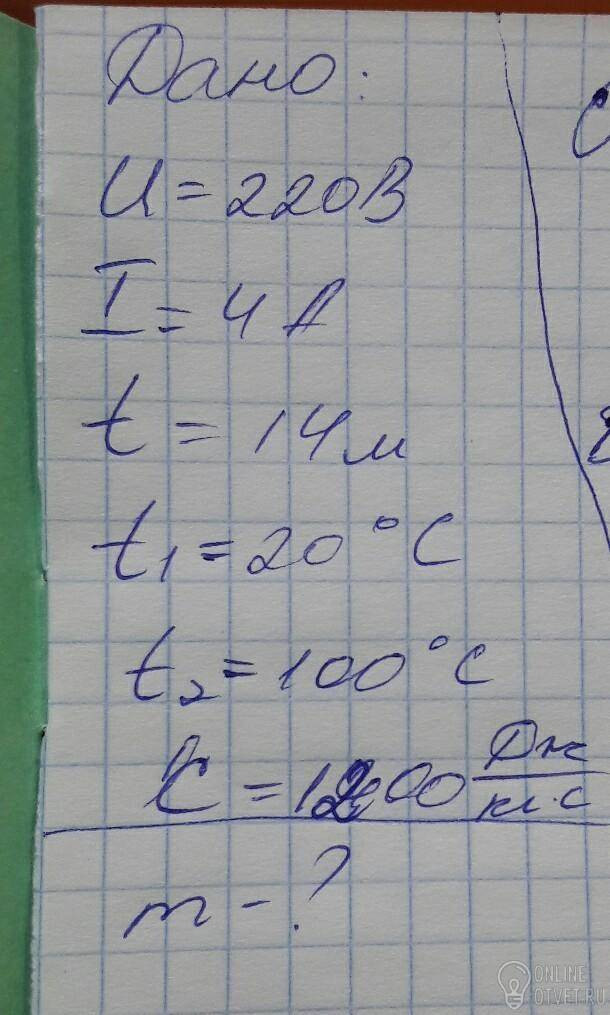 Дано:
U = 220В
I = 4 А
t = 14 м
t₁ = 20 °C
t₂ = 100 °C
C = 1200 Дж/кг·с
m - ?
ONLINE
OTVET.RU